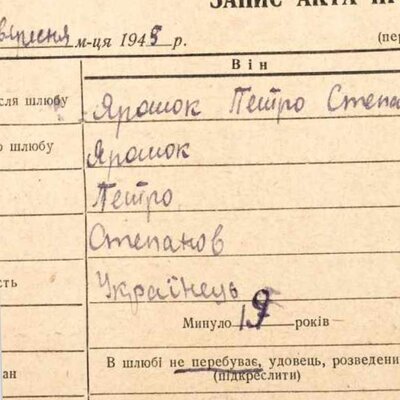 ЗАПИС АКТА ПР
вересня м-ця 1945 р. (пер
Він
сля шлюбу Ярошок Петро Степа
о шлюбу Ярошок
Петро
Степанов
сть Українець
Минуло 19 років
В шлюбі не перебуває, удовець, розведени
ан (підкреслити)